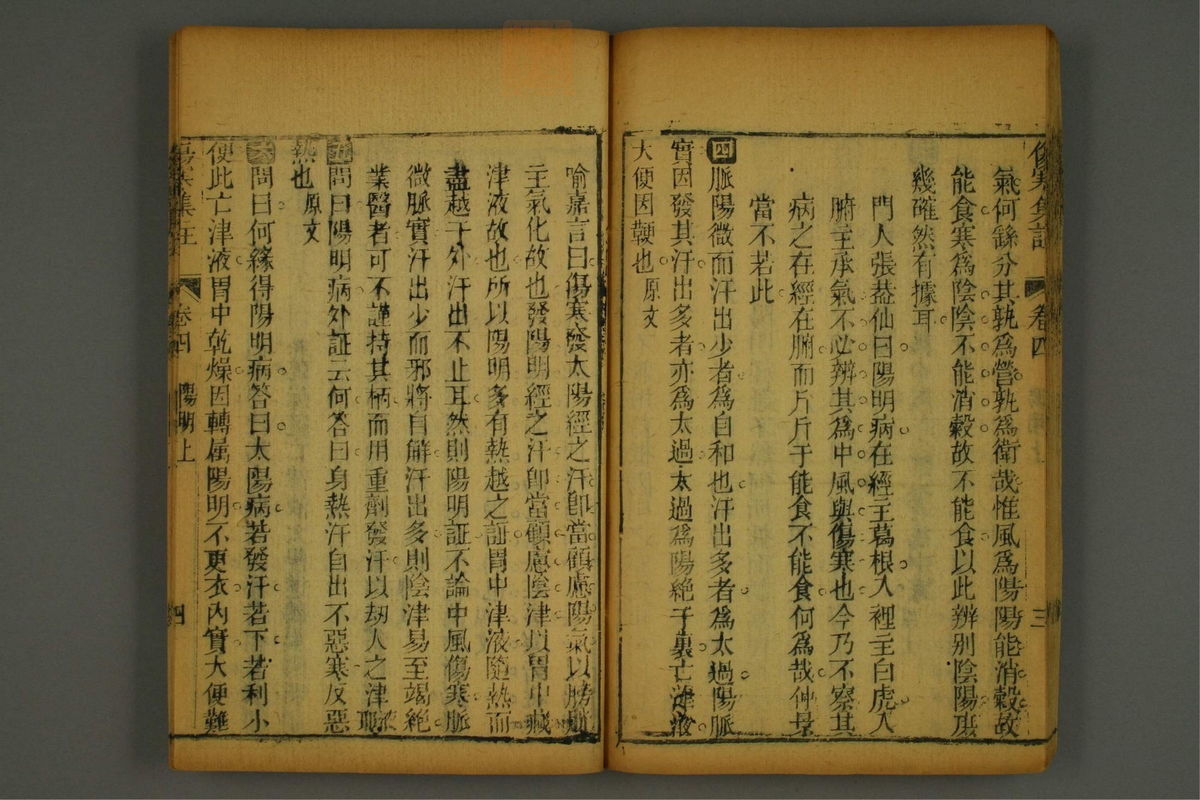 傷寒集註 卷四 三
氣何繇分其孰為營孰為衛哉惟風為陽陽能消穀故
能食寒為陰陰不能消穀故不能食以此辨别陰陽庻
幾確然有據耳
門人張葢仙曰陽明病在經主葛根入裡主白虎入
腑主承氣不必辨其為中風與傷寒也今乃不察其
病之在經在腑而斤斤于能食不能食何為哉仲景
當不若此
四脈陽微而汗出少者為自和也汗出多者為太過陽脈
實因發其汗出多者亦為太過太過為陽絶于裏亡津液
大便因鞕也 原文
喻嘉言曰傷寒發太陽經之汗卽當顧慮陽氣以膀胱
主氣化故也發陽明經之汗卽當顧慮陰津以胃中藏
津液故也所以陽明多有熱越之証胃中津液隨熱而
盡越于外汗出不止耳然則陽明証不論中風傷寒脈
微脈實汗出少而邪將自解汗出多則陰津易至竭絶
業醫者可不謹持其柄而用重劑發汗以刼人之津液耶
五問曰陽明病外証云何答曰身熱汗自出不惡寒反惡
熱也 原文
六問曰何緣得陽明病答曰太陽病若發汗若下若利小
便此亡津液胃中乾燥因轉属陽明不更衣內實大便難
傷寒集註 卷四 陽明上 四